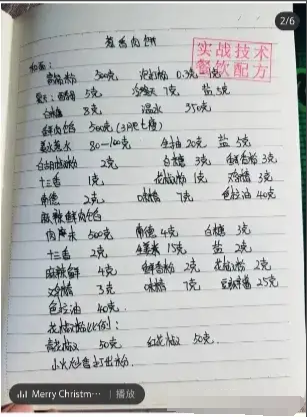 2/6
葱香肉饼
实战技术
餐饮配方
和面:
500克 泡打粉 0.3克
5克 7克 盐 5克
白糖 8克 温水 350克
鲜肉馅 500克(3肥七瘦)
葱姜水 80—100克 生油 20克 盐 5克
白胡椒粉 2克 白糖 3克 鲜香粉 3克
十三香 1克 花椒粉 1克 鸡精 3克
味精 7克 色拉油 40克
麻辣鲜肉馅
500克 4克 白糖 3克
十三香 2克 15克 盐 2克
麻辣鲜 4克 鲜香粉 2克 花椒粉 2克
鸡精 3克 味精 7克 25克
色拉油 40克
花椒粉比例:
青花椒 50克 红花椒 50克
小火炒香打出粉.
Merry Christm… 播放